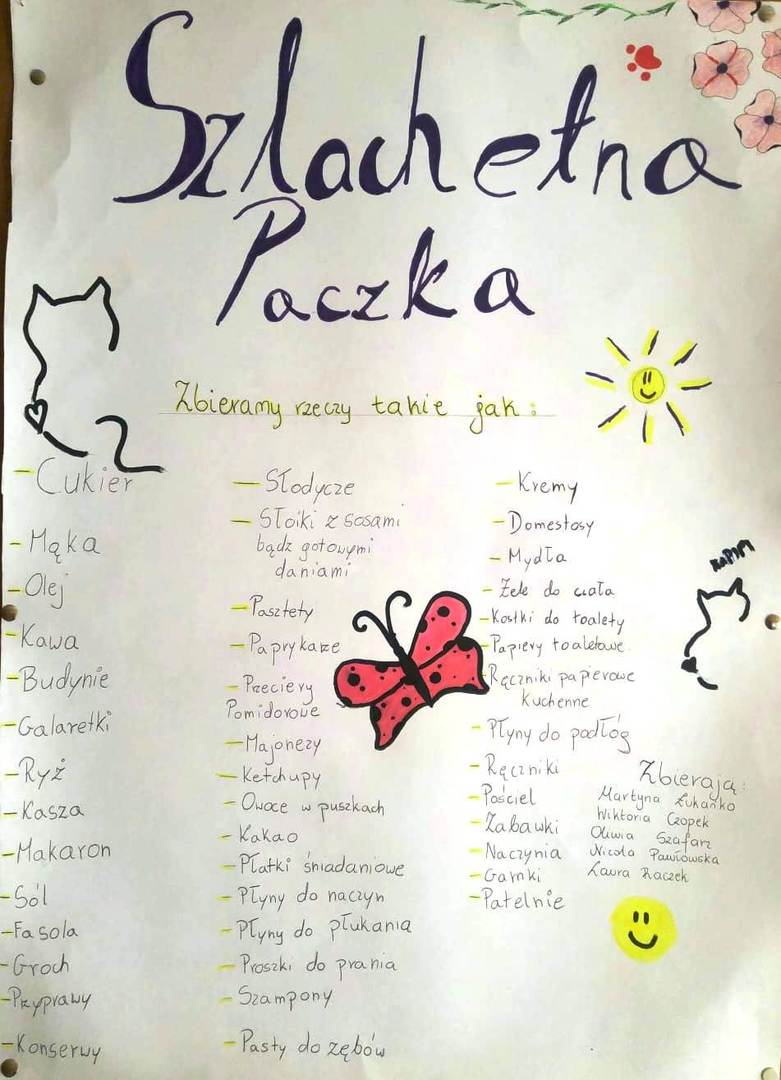 Szlachetna
Paczka
Zbieramy rzeczy takie jak:
- Cukier
- Mąka
- Olej
- Kawa
- Budynie
- Galaretki
- Ryż
- Kasza
- Makaron
- Sól
- Fasola
- Groch
- Przyprawy
- Konserwy
- Słodycze
- Słoiki z sosami
bądz gotowymi
daniami
- Pasztety
- Paprykarze
- Przeciery
Pomidorowe
- Majonezy
- Ketchupy
- Owoce w puszkach
- Kakao
- Płatki śniadaniowe
- Płyny do naczyn
- Płyny do płukania
- Proszki do prania
- Szampony
- Pasty do zębów
- Kremy
- Domestosy
- Mydła
- Żele do ciała
- Kostki do toalety
- Papiery toaletowe.
- Ręczniki papierowe
kuchenne
- Płyny do podłóg
- Ręczniki
- Pościel
- Zabawki
- Naczynia
- Garnki
- Patelnie
Zbierają:
Martyna Łukańko
Wiktoria Czopek
Oliwia Szafarz
Nicola Pawłowska
Laura Raczek